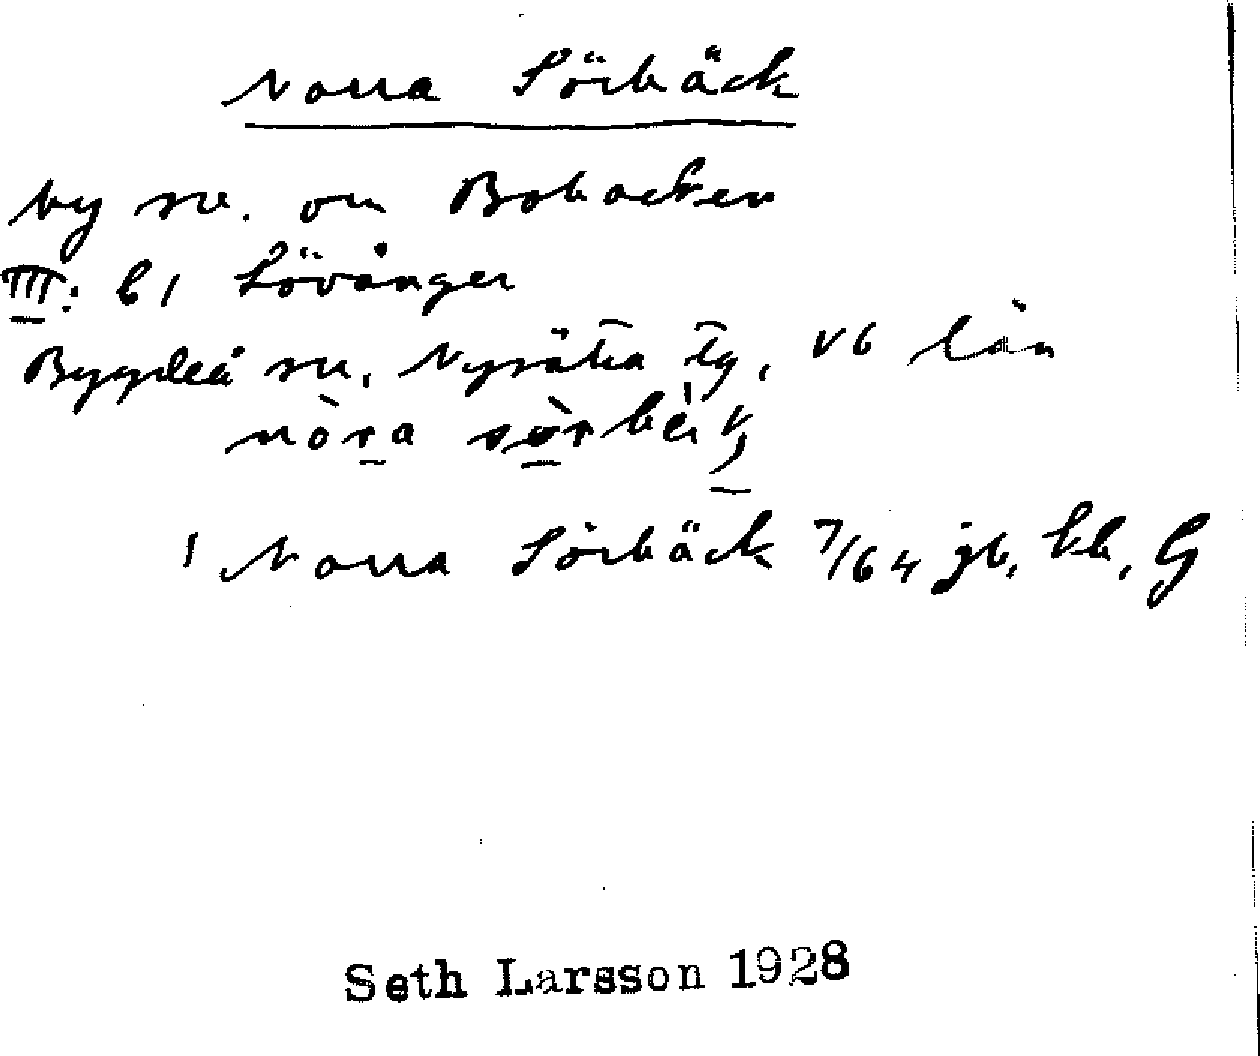 Norra Sörbäck
by sv. om Bobacken
III: 61 Lövånger
Bygdeå sn, Nysätra tg, Vb län
nòra
1 Norra Sörbäck 7/64 jb, kb, G
Seth Larsson 1928